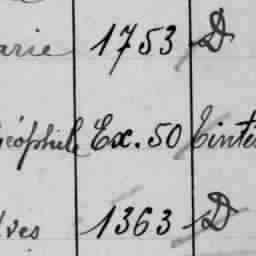 arie 1753 D
éophile Ex. 50 Tinté
Yves 1363 D